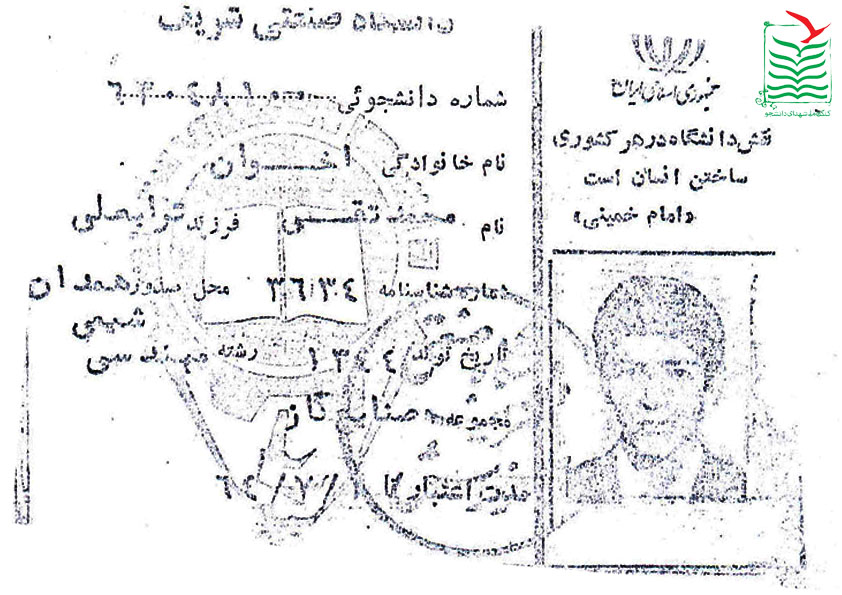 دانشگاه صنعتی شریف
شماره دانشجوئی
نام خانوادگی اخوان
نام محمد تقی فرزند ترابعلی
شماره شناسنامه ۳۶۱۳۴ محل صدور همدان
تاریخ تولد ۱۳۴۴ رشته مهندسی شیمی
مجموعه صنایع گاز
مدت اعتبار تا
جمهوری اسلامی ایران
نقش دانشگاه در هر کشوری
ساختن انسان است
«امام خمینی»
کنگره ملی شهدای دانشجو